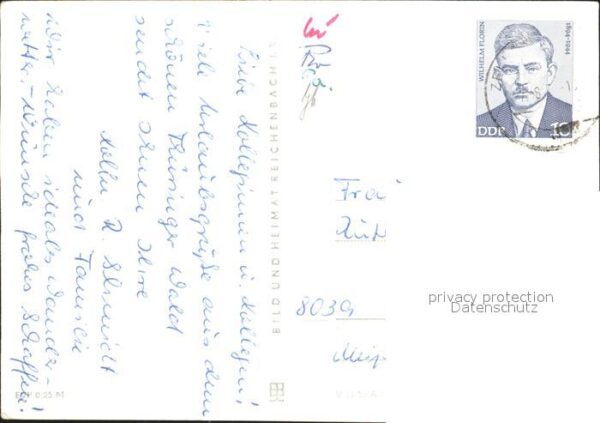 Liebe Kolleginnen u. Kollegen!
Viele Urlaubsgrüße aus dem
schönen Thüringer Wald
sendet Ihnen Ihre
Kolln. R. Schmidt
und Familie
Wir haben ideales Wander-
wetter. - Wünsche frohes Schaffen!
BILD UND HEIMAT REICHENBACH I.V.
WILHELM FLORIN
1894-1944
DDR
10
Frau
8039
privacy protection
Datenschutz
EVP 0,25 M